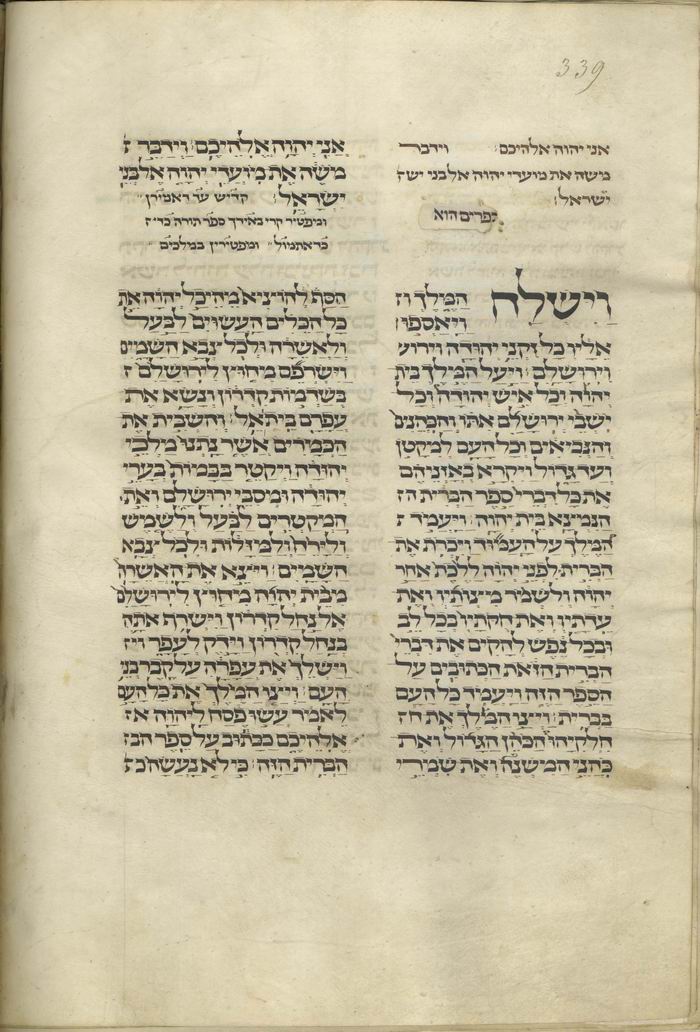 339
אני יהוה אלהיכם: וידבר
משה את מועדי יהוה אל בני יש
ישראל:
כפרים הוא
אני יהוה אלהיכם: וידבר
משה את מועדי יהוה אל בני
ישראל: קדיש עד דאמירן
ומפטיר קרי באידך ספר תורה
כדאתמול ומפטירין במלכים
וישלח המלך
ויאספו
אליו כל זקני יהודה וירוש
וירושלם: ויעל המלך בית
יהוה וכל איש יהודה וכל
ישבי ירושלם אתו והכהנים
והנביאים וכל העם למקטן
ועד גדול ויקרא באזניהם
את כל דברי ספר הברית הז
הנמצא בית יהוה: ויעמד
המלך על העמוד ויכרת את
הברית לפני יהוה ללכת אחר
יהוה ולשמר מצותיו ואת
עדתיו ואת חקתיו בכל לב
ובכל נפש להקים את דברי
הברית הזאת הכתובים על
הספר הזה ויעמד כל העם
בברית: ויצו המלך את
חלקיהו הכהן הגדול ואת
כהני המשנה ואת שמרי
הסף להוציא מהיכל יהוה את
כל הכלים העשוים לבעל
ולאשרה ולכל צבא השמים
וישרפם מחוץ לירושלם
בשדמות קדרון ונשא את
עפרם בית אל: והשבית את
הכמרים אשר נתנו מלכי
יהודה ויקטר בבמות בערי
יהודה ומסבי ירושלם ואת
המקטרים לבעל ולשמש
ולירח ולמזלות ולכל צבא
השמים: ויצא את האשרה
מבית יהוה מחוץ לירושלם
אל נחל קדרון וישרף אתה
בנחל קדרון וידק לעפר
וישלך את עפרה על קבר בני
העם: ויצו המלך את כל העם
לאמר עשו פסח ליהוה
אלהיכם ככתוב על ספר
הברית הזה: כי לא נעשה